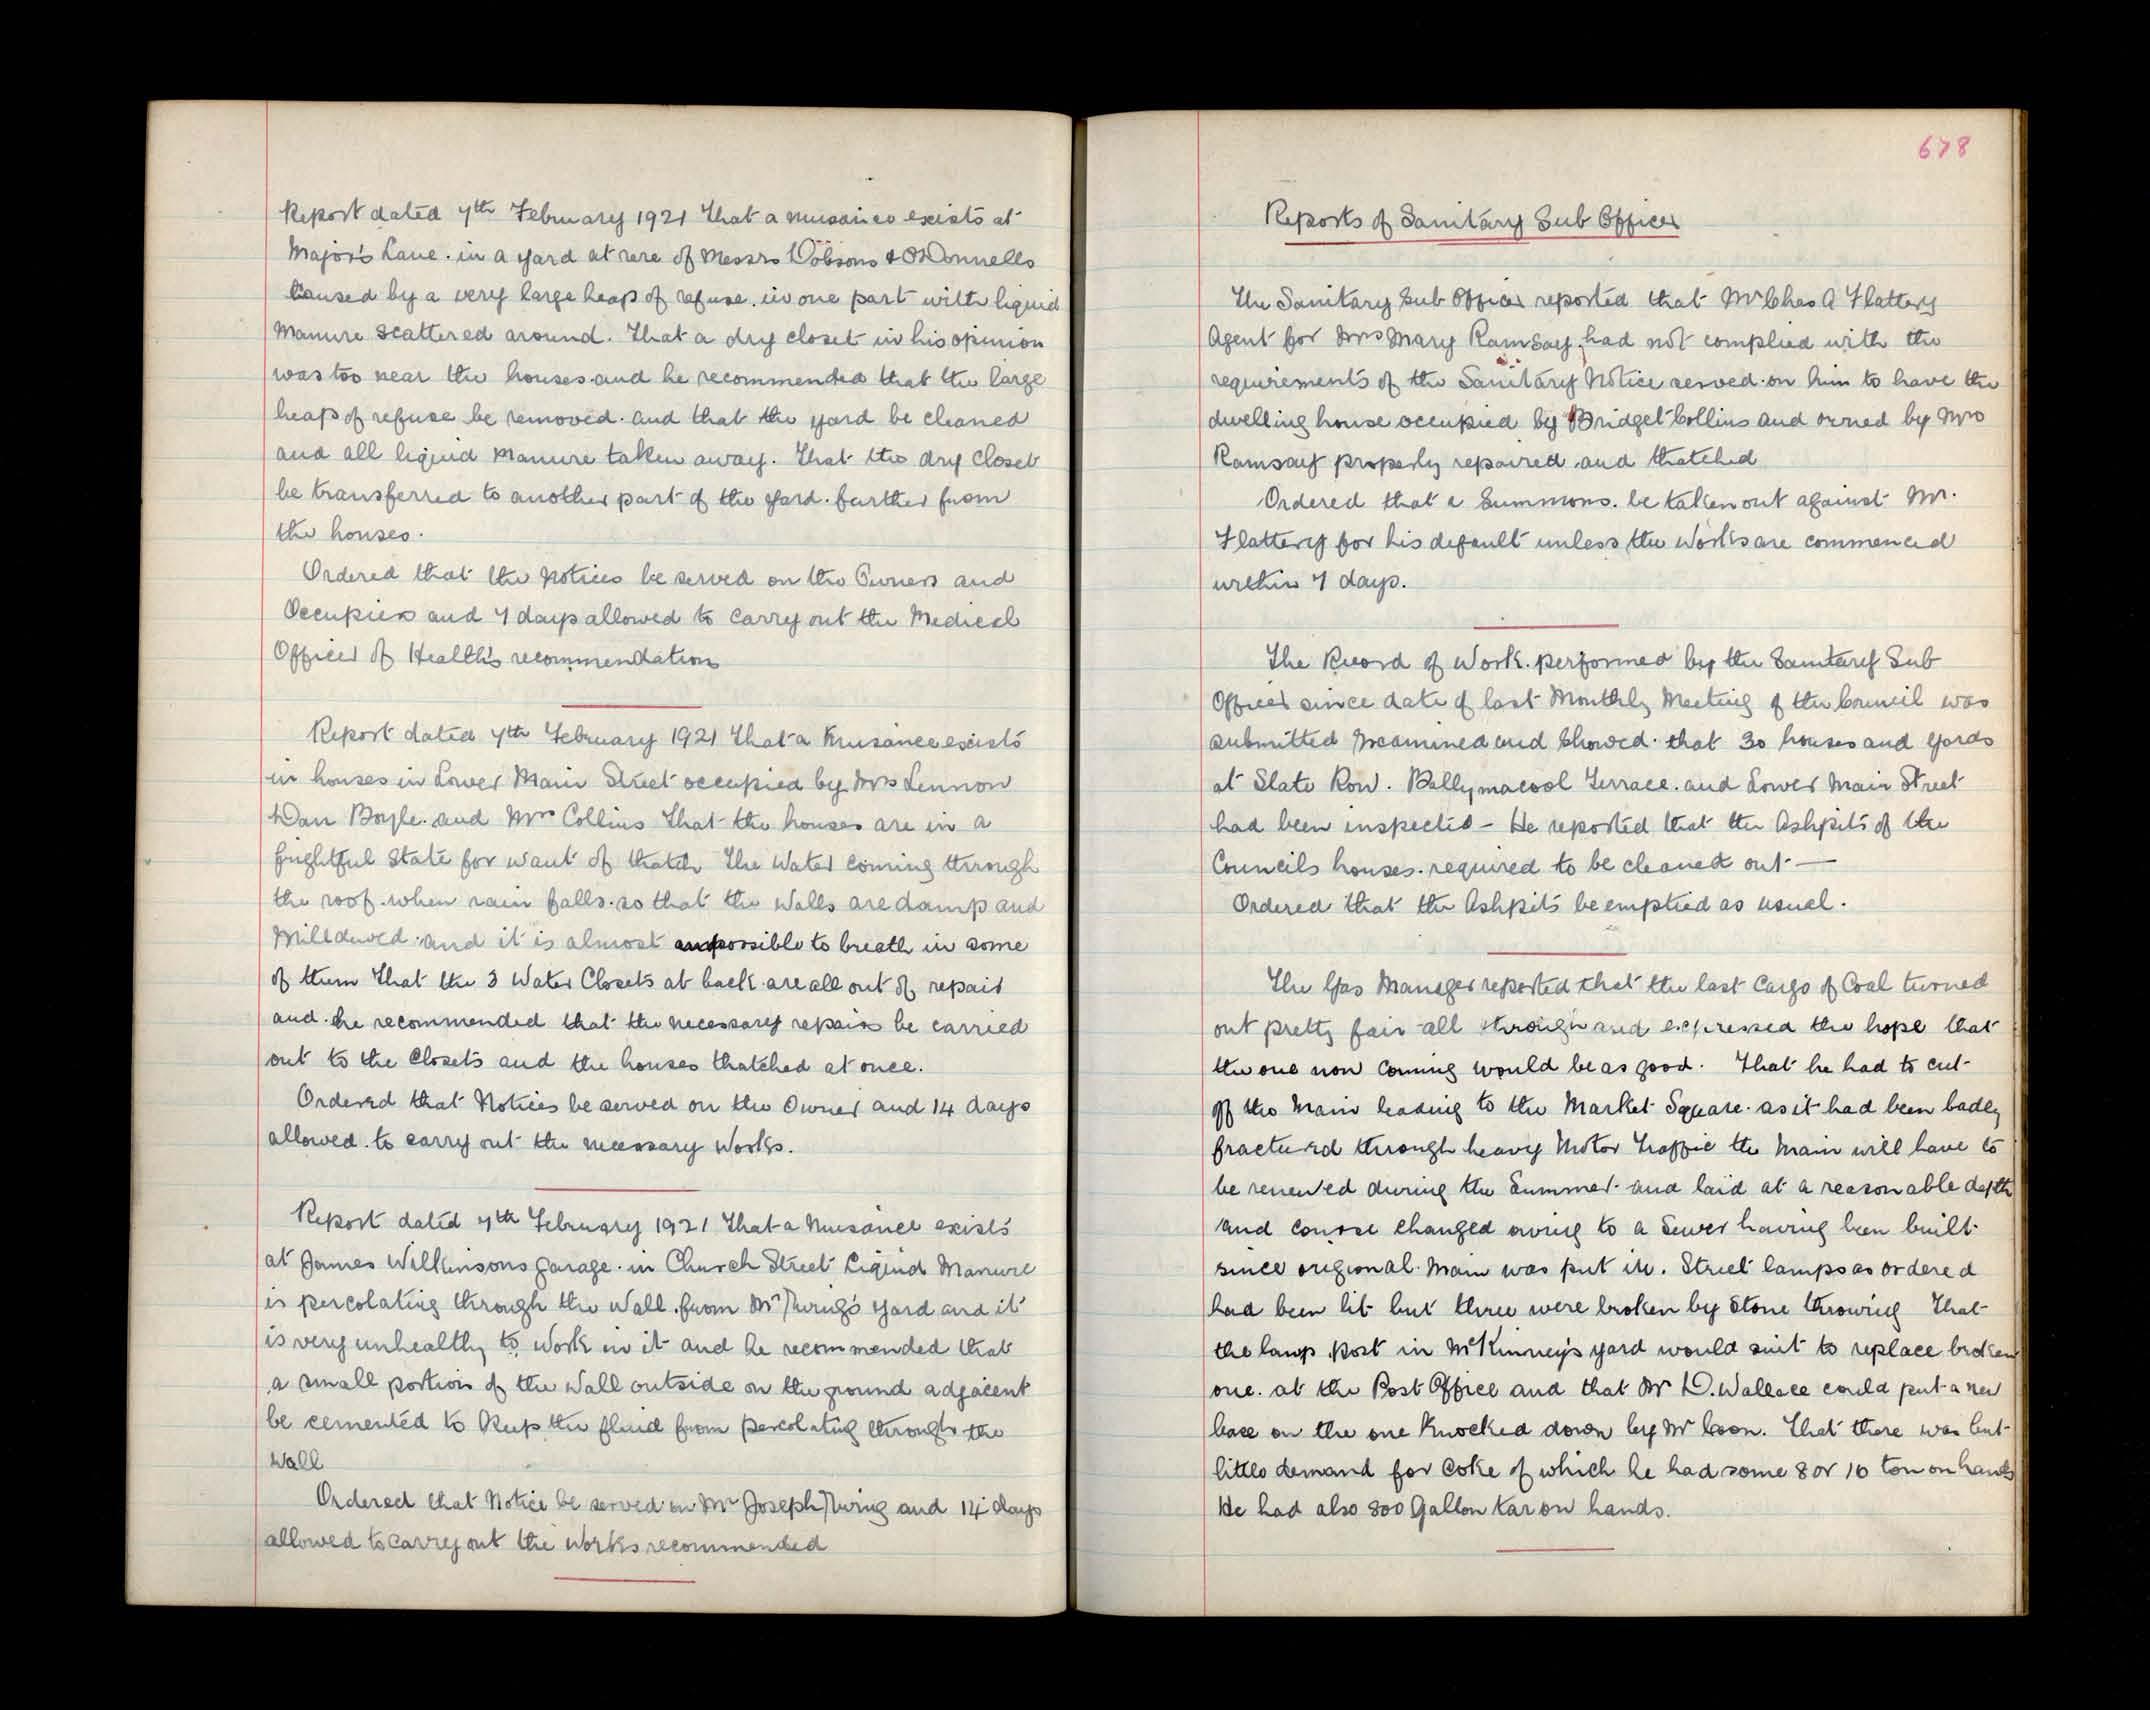 Report dated 7th February 1921 that a nuisance exists at
Major's Lane. in a yard at rere of Messrs Dobsons & O'Donnells
Caused by a very large heap of refuse. in one part with liquid
Manure scattered around. That a dry closet in his opinion
was too near the houses and he recommended that the large
heap of refuse be removed. and that the yard be cleaned
and all liquid Manure taken away. That the dry closet
be transferred to another part of the yard. further from
the houses.
Ordered that the Notices be served on the Owners and
Occupiers and 7 days allowed to carry out the Medical
Officer of Health's recommendations
Report dated 7th February 1921 that a Nuisance exists
in houses in Lower Main Street occupied by Mrs Lennon
Dan Boyle. and Mrs Collins That the houses are in a
frightful state for want of thatch The Water coming through
the roof. when rain falls. so that the Walls are damp and
Milldewed. and it is almost impossible to breath in some
of them That the 3 Water Closets at back are all out of repair
and he recommended that the necessary repairs be carried
out to the Closets and the houses thatched at once.
Ordered that Notices be served on the Owner and 14 days
allowed. to carry out the necessary Works.
Report dated 7th February 1921 That a Nuisance exists
at James Wilkinsons garage. in Church Street Liquid Manure
is percolating through the Wall. from Mr yard and it
is very unhealthy to Work in it and he recommended that
a small portion of the Wall outside on the ground adjacent
be cemented to Keep the fluid from percolating through the
Wall
Ordered that Notice be served on Mr Joseph and 14 days
allowed to carry out the Works recommended
678
Reports of Sanitary Sub Officer
The Sanitary Sub Officer reported that Mr Chas A Flattery
Agent for Mrs Mary Ramsay, had not complied with the
requirements of the Sanitary Notice served on him to have the
dwelling house occupied by Bridget Collins and owned by Mrs
Ramsay properly repaired and thatched
Ordered that a Summons. be taken out against Mr.
Flattery for his default unless the Works are commenced
within 7 days.
The Record of Work. performed by the Sanitary Sub
Officer since date of last Monthly Meeting of the Council was
submitted examined and showed. that 30 houses and yards
at Slate Row. Ballymacool Terrace. and Lower Main Street
had been inspected - He reported that the Ashpits of the
Councils houses. required to be cleaned out -
Ordered that the Ashpits be emptied as usual.
The Gas Manager reported that the last Cargo of Coal turned
out pretty fair all through and expressed the hope that
the one now coming would be as good. That he had to cut
off the Main leading to the Market Square. as it had been badly
fractured through heavy Motor Traffic the Main will have to
be renewed during the Summer. and laid at a reasonable depth
and course changed owing to a Sewer having been built
since origional Main was put in. Street lamps as ordered
had been lit but three were broken by Stone throwing That
the lamp post in McKinney's yard would suit to replace broken
one. at the Post Office and that Mr D. Wallace could put a new
base on the one Knocked down by Mr Coon. That there was but
little demand for Coke of which he had some 8 or 10 ton on hands
He had also 800 Gallon tar on hands.